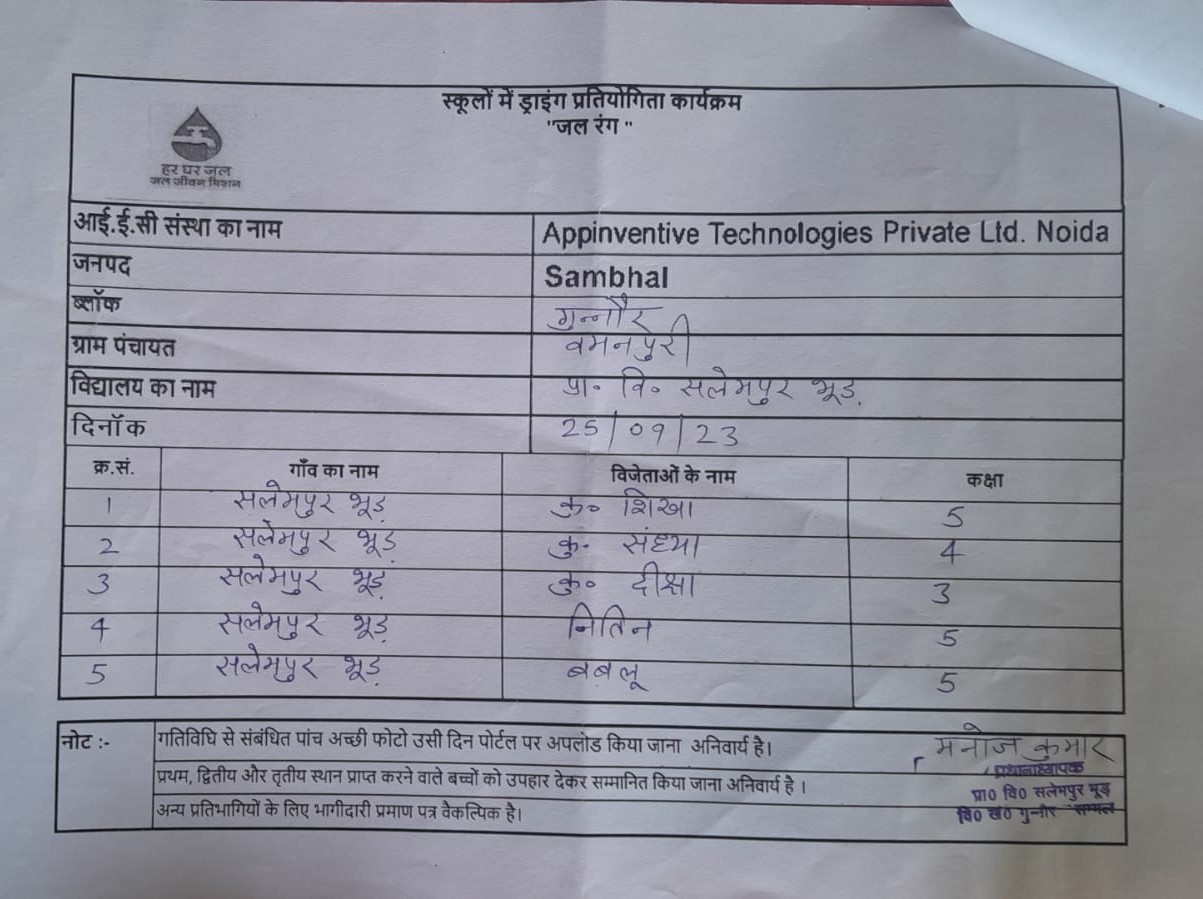 स्कूलों में ड्राइंग प्रतियोगिता कार्यक्रम
"जल रंग "
हर घर जल
जल जीवन मिशन
आई.ई.सी संस्था का नाम Appinventive Technologies Private Ltd. Noida
जनपद Sambhal
ब्लॉक गुन्नौर
ग्राम पंचायत वमनपुरी
विद्यालय का नाम प्रा० वि० सलेमपुर भूड़
दिनॉक 25/09/23
क्र.सं. गाँव का नाम विजेताओं के नाम कक्षा
1 सलेमपुर भूड़ कु० शिखा 5
2 सलेमपुर भूड़ कु. संध्या 4
3 सलेमपुर भूड़ कु० दीक्षा 3
4 सलेमपुर भूड़ नितिन 5
5 सलेमपुर भूड़ बबलू 5
नोट :- गतिविधि से संबंधित पांच अच्छी फोटो उसी दिन पोर्टल पर अपलोड किया जाना अनिवार्य है।
प्रथम, द्वितीय और तृतीय स्थान प्राप्त करने वाले बच्चों को उपहार देकर सम्मानित किया जाना अनिवार्य है ।
अन्य प्रतिभागियों के लिए भागीदारी प्रमाण पत्र वैकल्पिक है।
मनोज कुमार
प्रधानाध्यापक
प्रा0 वि0 सलेमपुर भूड़
वि0 खं0 गुन्नौर सम्भल